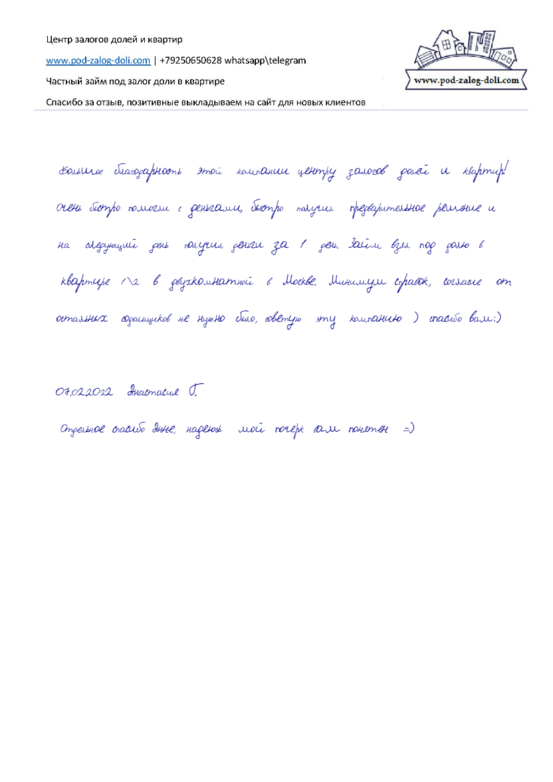 Центр залогов долей и квартир
www.pod-zalog-doli.com | +79250650628 whatsapp\telegram
Частный займ под залог доли в квартире
Спасибо за отзыв, позитивные выкладываем на сайт для новых клиентов
www.pod-zalog-doli.com
Большая благодарность этой компании центру залогов долей и квартир!
Очень быстро помогли с деньгами, быстро получил предварительное решение и
на следующий день получил деньги за 1 день. Займ взял под долю в
квартире 1\2 в двухкомнатной в Москве. Минимум справок, согласие от
остальных содольщиков не нужно было, советую эту компанию ) спасибо вам:)
07.02.2022 Анастасия Г.
Отдельное спасибо Анне, надеюсь мой почерк вам понятен =)